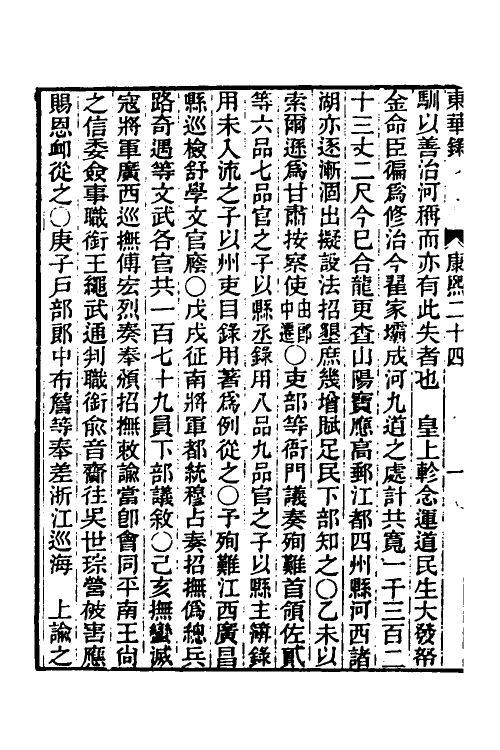 東華錄 康熙二十四 一
馴以善治河稱而亦有此失者也 皇上軫念運道民生大發帑
金命臣徧為修治今翟家壩成河九道之處計共寬一千三百二
十三丈二尺今已合龍更查山陽寶應高郵江都四州縣河西諸
湖亦逐漸涸出擬設法招墾庶幾增賦足民下部知之○乙未以
索爾遜為甘肅按察使由郎中遷○吏部等衙門議奏殉難首領佐貳
等六品七品官之子以縣丞錄用八品九品官之子以縣主簿錄
用未入流之子以州吏目錄用著為例從之○予殉難江西廣昌
縣巡檢舒學文官廕○戊戌征南將軍都統穆占奏招撫偽總兵
路奇遇等文武各官共一百七十九員下部議敘○己亥撫蠻滅
寇將軍廣西巡撫傅宏烈奏奉頒招撫敕諭當卽會同平南王尙
之信委僉事職銜王繩武通判職銜俞音齎往吳世琮營被害應
賜恩卹從之○庚子戶部郎中布詹等奉差浙江巡海 上諭之